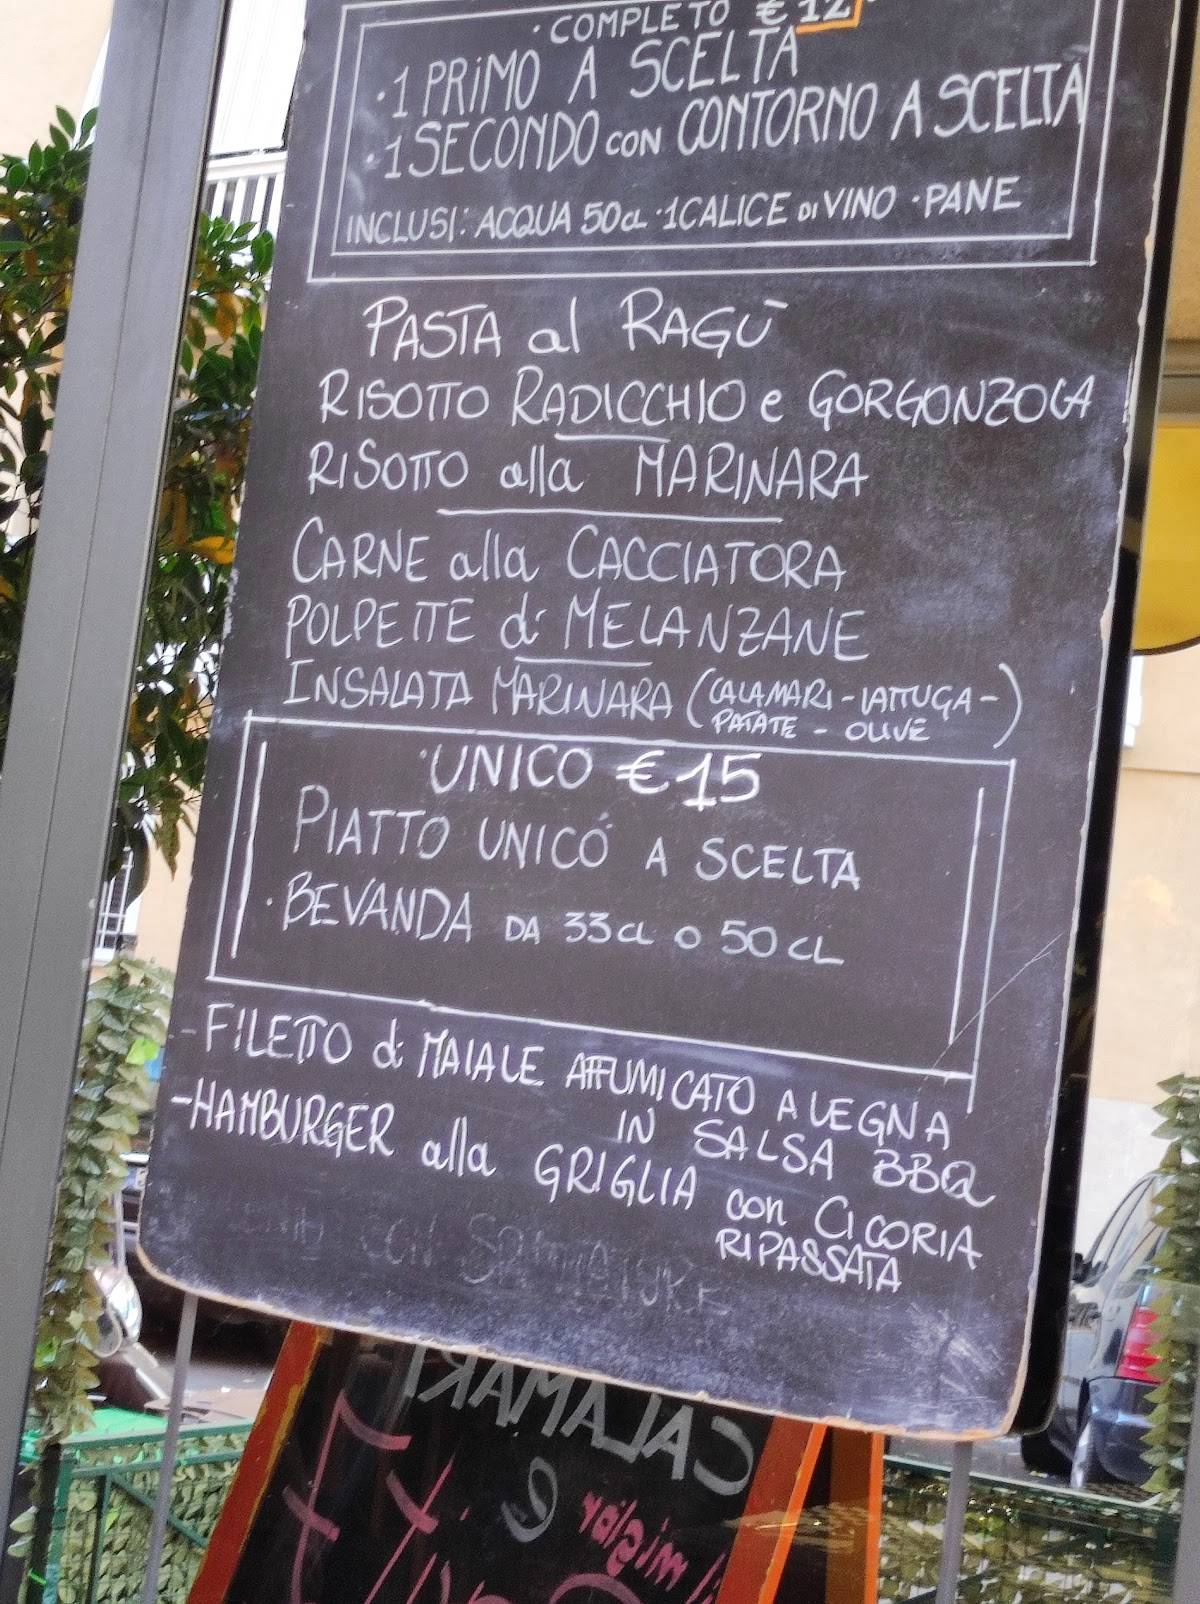 · COMPLETO €12
· 1 PRIMO A SCELTA
· 1 SECONDO CON CONTORNO A SCELTA
INCLUSI: ACQUA 50CL · 1 CALICE DI VINO · PANE
PASTA al RAGÙ
RISOTTO RADICCHIO e GORGONZOLA
RISOTTO alla MARINARA
CARNE alla CACCIATORA
POLPETTE di MELANZANE
INSALATA MARINARA (CALAMARI - LATTUGA -
PATATE - OLIVE)
· UNICO €15
PIATTO UNICO A SCELTA
· BEVANDA DA 33CL O 50CL
- FILETTO di MAIALE AFFUMICATO A LEGNA
IN SALSA BBQ
- HAMBURGER alla GRIGLIA con CICORIA
RIPASSATA
CON
CALAMARI
e
il miglior